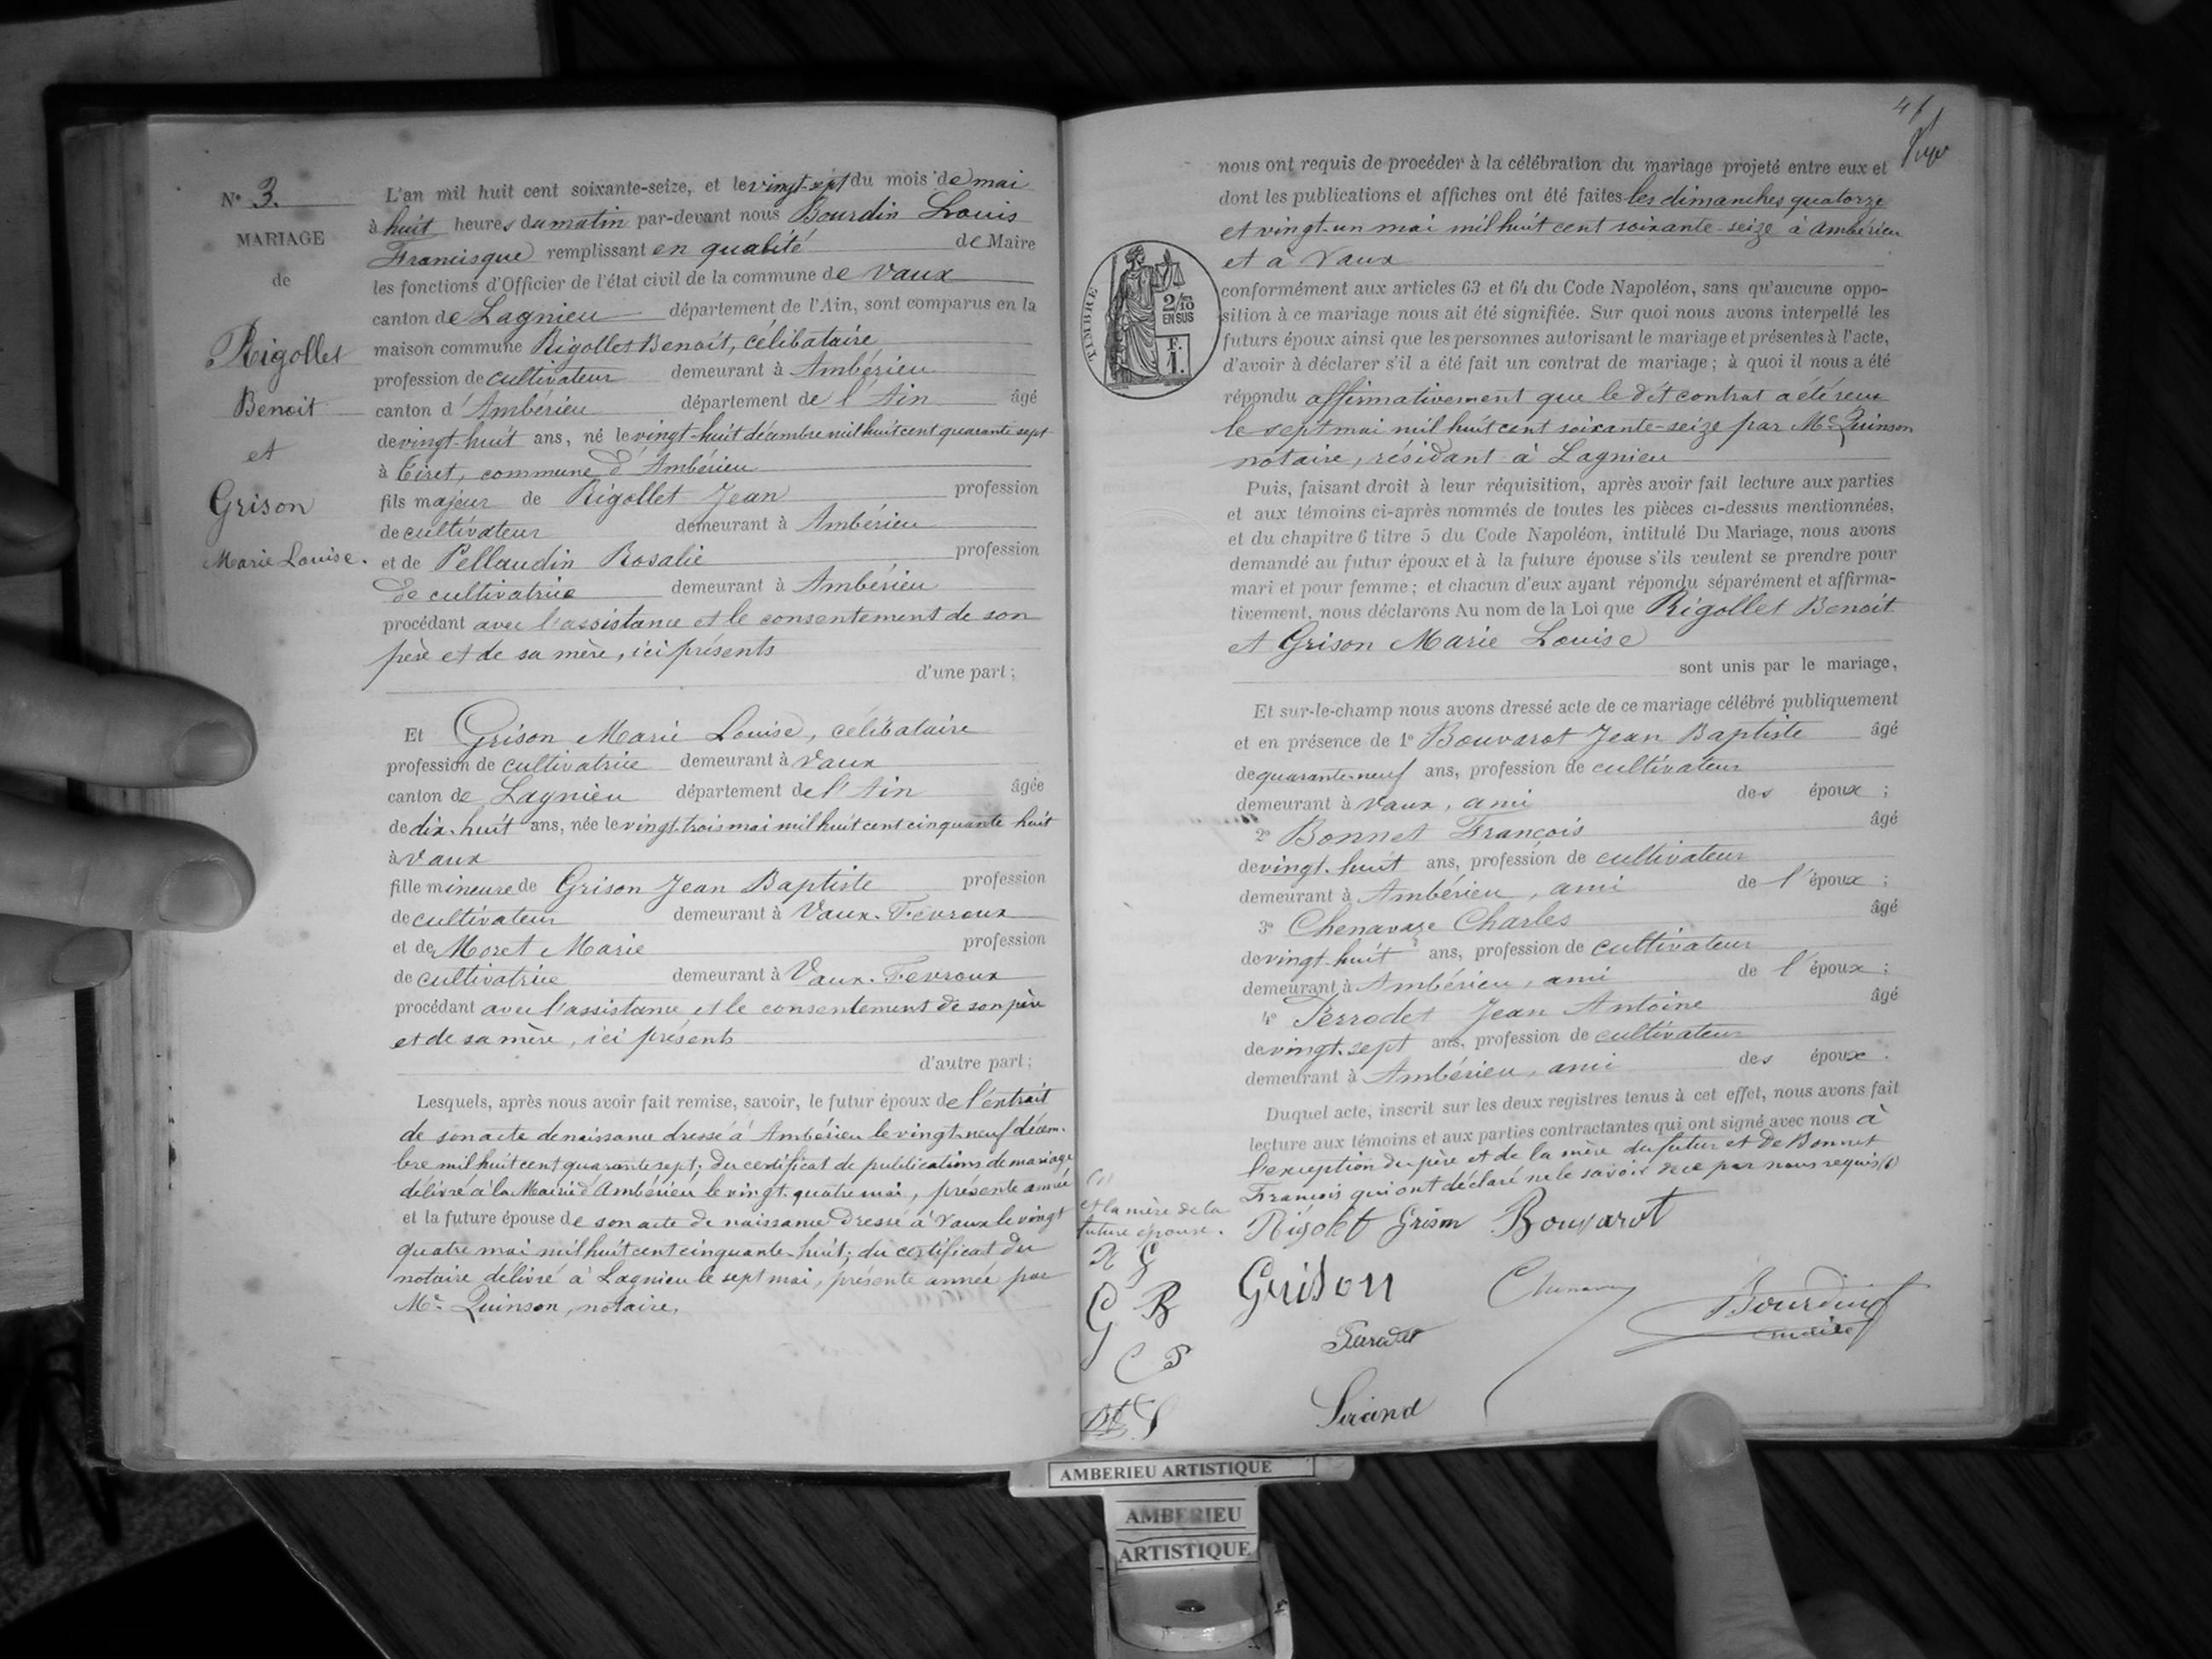 N° 3.
MARIAGE
de
Rigollet
Benoit
et
Grison
Marie Louise.
L'an mil huit cent soixante-seize, et le vingt-sept du mois de mai
à huit heures du matin par-devant nous Bourdin Louis
Francisque remplissant en qualité de Maire
les fonctions d'Officier de l'état civil de la commune de Vaux
canton de Lagnieu département de l'Ain, sont comparus en la
maison commune Rigollet Benoit, célibataire
profession de cultivateur demeurant à Ambérieu
canton d'Ambérieu département de l'Ain âgé
de vingt-huit ans, né le vingt-huit décembre mil huit cent quarante sept
à Tiret, commune d'Ambérieu
fils majeur de Rigollet Jean profession
de cultivateur demeurant à Ambérieu
et de Pellaudin Rosalie profession
de cultivatrice demeurant à Ambérieu
procédant avec l'assistance et le consentement de son
père et de sa mère, ici présents
d'une part;
Et Grison Marie Louise, célibataire
profession de cultivatrice demeurant à Vaux
canton de Lagnieu département de l'Ain âgée
de dix-huit ans, née le vingt-trois mai mil huit cent cinquante huit
à Vaux
fille mineure de Grison Jean Baptiste profession
de cultivateur demeurant à Vaux-Fevroux
et de Moret Marie profession
de cultivatrice demeurant à Vaux-Fevroux
procédant avec l'assistance et le consentement de son père
et de sa mère, ici présents
d'autre part;
Lesquels, après nous avoir fait remise, savoir, le futur époux de l'extrait
de son acte de naissance dressé à Ambérieu le vingt-neuf décem-
bre mil huit cent quarante sept; du certificat de publications de mariage
délivré à la Mairie d'Ambérieu le vingt-quatre mai, présente année
et la future épouse de son acte de naissance dressé à Vaux le vingt
quatre mai mil huit cent cinquante-huit; du certificat du
notaire délivré à Lagnieu le sept mai, présente année par
Me Quinson, notaire,
41
nous ont requis de procéder à la célébration du mariage projeté entre eux et
dont les publications et affiches ont été faites les dimanches quatorze
et vingt-un mai mil huit cent soixante-seize à Ambérieu
et à Vaux
TIMBRE
2/10
EN SUS
F.
1.
conformément aux articles 63 et 64 du Code Napoléon, sans qu'aucune oppo-
sition à ce mariage nous ait été signifiée. Sur quoi nous avons interpellé les
futurs époux ainsi que les personnes autorisant le mariage et présentes à l'acte,
d'avoir à déclarer s'il a été fait un contrat de mariage; à quoi il nous a été
répondu affirmativement que le dit contrat a été reçu
le sept mai mil huit cent soixante-seize par Me Quinson
notaire, résidant à Lagnieu
Puis, faisant droit à leur réquisition, après avoir fait lecture aux parties
et aux témoins ci-après nommés de toutes les pièces ci-dessus mentionnées,
et du chapitre 6 titre 5 du Code Napoléon, intitulé Du Mariage, nous avons
demandé au futur époux et à la future épouse s'ils veulent se prendre pour
mari et pour femme; et chacun d'eux ayant répondu séparément et affirma-
tivement, nous déclarons Au nom de la Loi que Rigollet Benoit
et Grison Marie Louise
sont unis par le mariage,
Et sur-le-champ nous avons dressé acte de ce mariage célébré publiquement
et en présence de 1° Bouvarot Jean Baptiste âgé
de quarante-neuf ans, profession de cultivateur
demeurant à Vaux, ami des époux;
2° Bonnet François âgé
de vingt-huit ans, profession de cultivateur
demeurant à Ambérieu, ami de l'époux;
3° Chenavaze Charles âgé
de vingt-huit ans, profession de cultivateur
demeurant à Ambérieu, ami de l'époux;
4° Perrodet Jean Antoine âgé
de vingt-sept ans, profession de cultivateur
demeurant à Ambérieu, ami des époux.
Duquel acte, inscrit sur les deux registres tenus à cet effet, nous avons fait
lecture aux témoins et aux parties contractantes qui ont signé avec nous à
l'exception du père et de la mère du futur et de Bonnet
François qui ont déclaré ne le savoir de ce par nous requis (1)
(1)
et la mère de la
future épouse.
R G
G B
C P
Rigolet Grison Bouvarot
Grison
Bourdin
maire
Sirand
AMBERIEU ARTISTIQUE
AMBERIEU
ARTISTIQUE